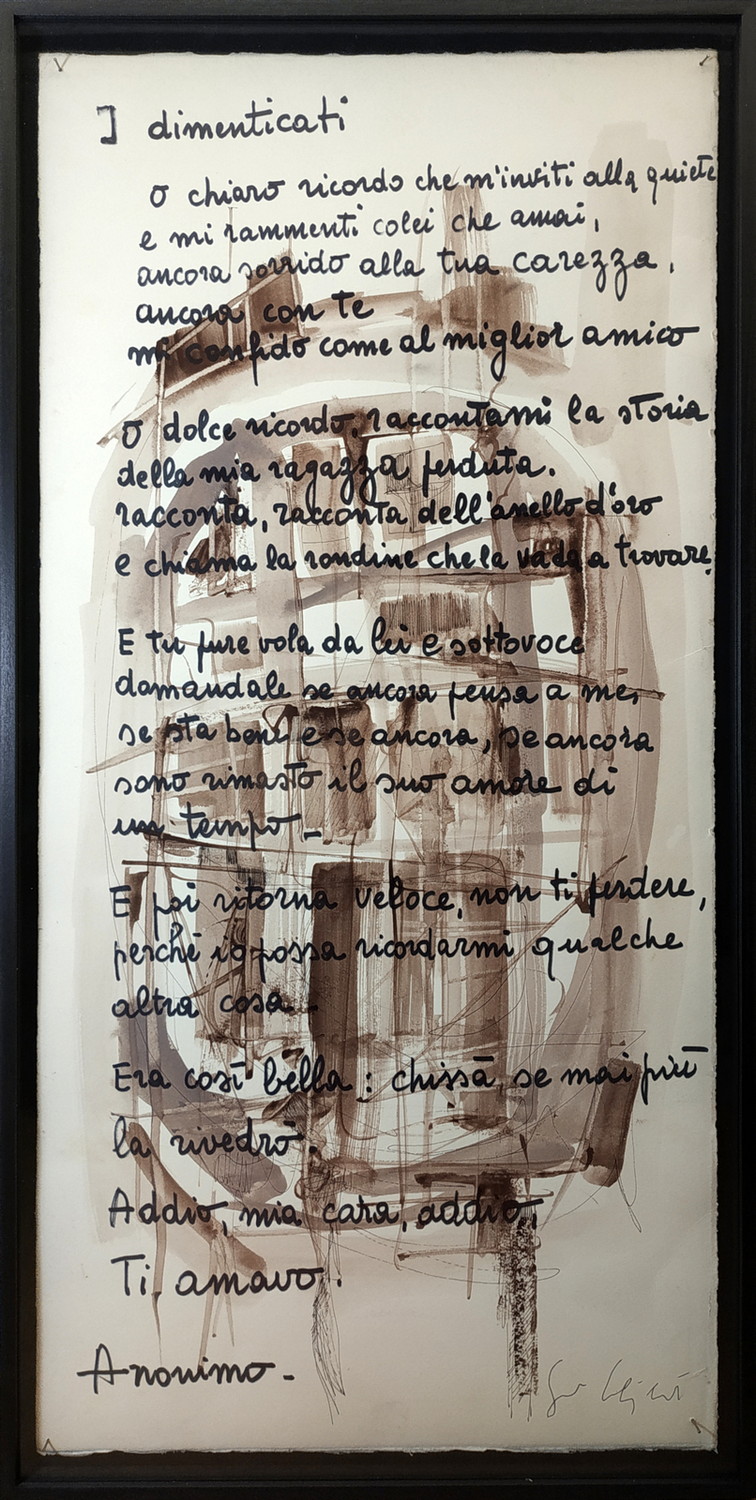 I dimenticati
O chiaro ricordo che m'inviti alla quiete
e mi rammenti colei che amai,
ancora sorrido alla tua carezza,
ancora con te
mi confido come al miglior amico
O dolce ricordo, raccontami la storia
della mia ragazza perduta.
racconta, racconta dell'anello d'oro
e chiama la rondine che la vada a trovare.
E tu pure vola da lei e sottovoce
domandale se ancora pensa a me,
se sta bene e se ancora, se ancora
sono rimasto il suo amore di
un tempo_
E poi ritorna veloce, non ti perdere,
perchē io possa ricordarmi qualche
altra cosa_
Era così bella: chissā se mai più
la rivedrō.
Addio, mia cara, addio,
Ti amavo.
Anonimo.-